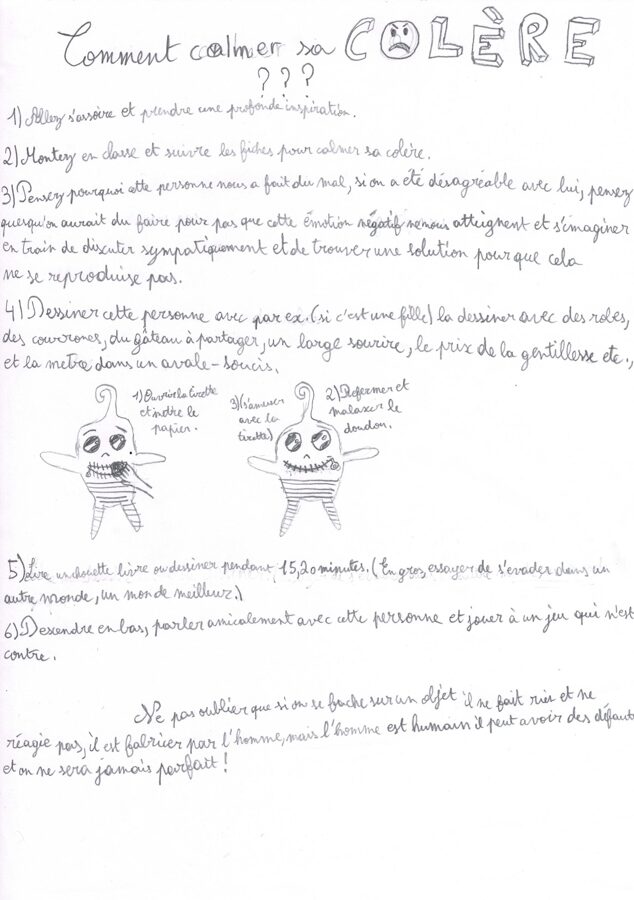 Comment calmer sa COLÈRE
? ? ?
1) Allez s'assoire et prendre une profonde inspiration.
2) Montez en classe et suivre les fiches pour calmer sa colère.
3) Pensez pourquoi cette personne nous a fait du mal, si on a été désagréable avec lui, pensez
quesqu'on aurait du faire pour pas que cette émotion négatif ne nous atteignent et s'imaginer
en train de discuter sympatiquement et de trouver une solution pour que cela
ne se reproduise pas.
4) Dessiner cette personne avec par ex. (si c'est une fille) la dessiner avec des robes,
des couronnes, du gâteau à partager, un large sourire, le prix de la gentillesse etc.,
et la metre dans un avale-soucis.
1) Ouvrir la tirette
et metre le
papier.
2) Refermer et
malaxer le
doudou.
3) (s'amuser
avec la
tirette)
5) Lire un chouette livre ou dessiner pendant 15, 20 minutes. (En gros, essayer de s'evader dans un
autre monde, un monde meilleur.)
6) Descendre en bas, parler amicalement avec cette personne et jouer à un jeu qui n'est
contre.
Ne pas oublier que si on se fache sur un objet il ne fait rien et ne
réagie pas, il est fabriquer par l'homme, mais l'homme est humain il peut avoir des défaut
et on ne sera jamais parfait !